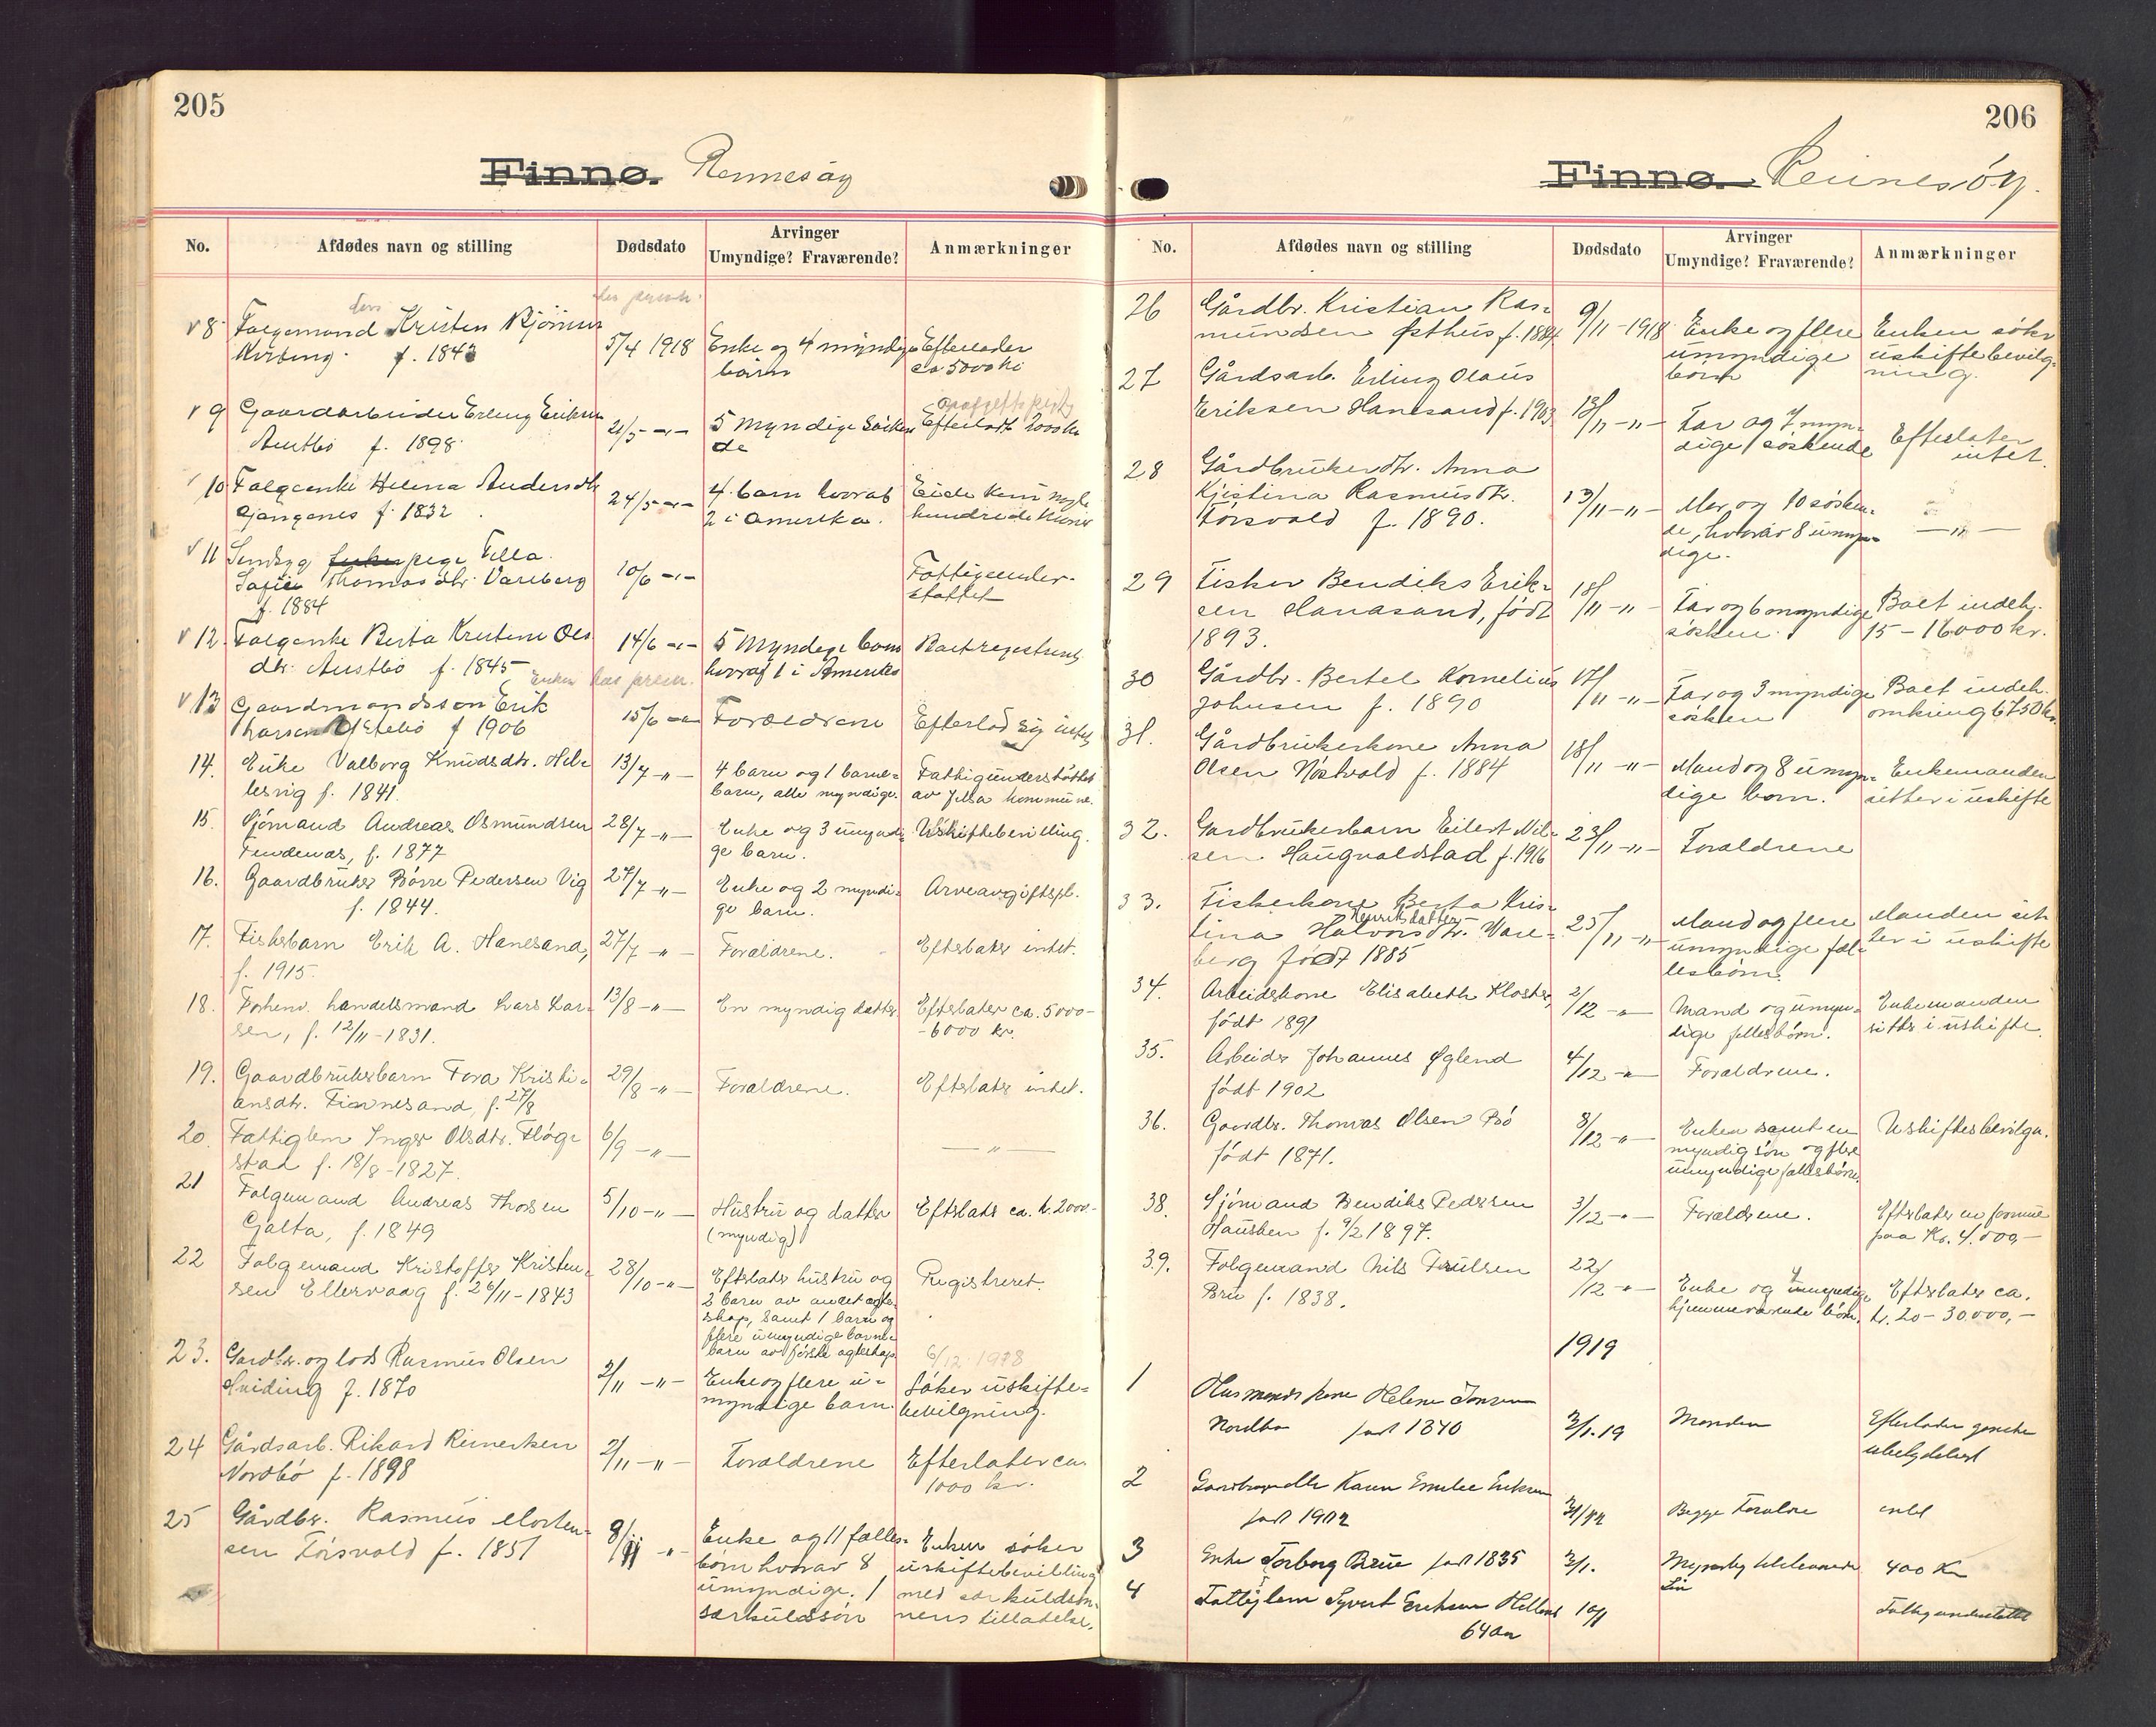 205
Finnø. Rennesøy
No.
Afdødes navn og stilling
Dødsdato
Arvinger
Umyndige? Fraværende?
Anmærkninger
8 Folgemand Kristen Bjørnsen
f. 1843
5/4 1918
Enke og 4 myndige
børn
Efterlader
ca 5000 kr
9 Gaardarbeider Erling Eriksen
Austbø f. 1898
21/5 -"-
5 Myndige Søsken
de
Efterladt 2000 kr
10 Folgeenke Helena Andersdtr
f. 1832
24/5 -"-
4 barn hvorav
2 i Amerika.
hundrede kroner
11 Sindsyg pige Tilla
Sofie Thomasdtr. Vareberg
f. 1884
10/6 -"-
Fattigunder-
støttet
12. Folgeenke Berta Kristine Ols
dtr. Austbø f. 1845
14/6 -"-
5 Myndige barn
hvoraf 1 i Amerika
Boet registreret
13 Gaardmandssøn Erik
Larsen f 1906
15/6 -"-
Forældrene
Efterlod sig intet
14. Enke Valborg Knudsdtr. Hel-
lesvig f. 1841.
13/7 -"-
4 barn og 1 barne-
barn, alle myndige.
Fattigunderstøttet
av Jelsa kommune.
15. Sjømand Andreas Osmundsen
f. 1877
28/7 -"-
Enke og 3 umyndi-
ge barn.
Uskiftebevilling.
16. Gaardbruker Børre Pedersen Vig
f. 1844.
27/7 -"-
Enke og 2 myndi-
ge barn.
Arveavgiftspl.
17. Fiskebarn Erik A. Hanesand,
f. 1915.
27/7 -"-
Forældrene.
Efterlater intet.
18. Forhenv. handelsmand Lars Lar-
sen, f. 12/11-1831.
13/8 -"-
En myndig datter
Efterlater ca. 5000-
-6000 kr.
19. Gaardbrukerbarn Tora Kristi-
ansdtr. Finnesand, f. 27/8
29/8 -"-
Forældrene.
Efterlater intet.
20. Fattiglem Inger Olsdtr. Fløg-
stad f. 18/8-1827.
6/9 -"-
-"-
21 Folgemand Andreas Thorsen
Galta, f. 1849
5/10 -"-
Hustru og datter
(myndig)
Efterlater ca. kr. 2000-
22 Folgemand Kristoffer Kristen-
sen Eltervaag f. 26/11-1843
28/10 -"-
Efterlater hustru og
2 barn av andet egte-
skap, samt 1 barn og
flere umyndige barne-
barn av første egteskap
Registreret.
23. Gardbr. og lods Rasmus Olsen
f. 1870
2/11 -"-
Enke og flere u-
myndige barn.
6/12 1918
Søker uskifte-
bevilgning.
24 Gårdsarb. Rikard Reinertsen
Nordbø f. 1898
2/11 -"-
Foraldrene
Efterlater ca.
1000 kr.
25 Gårdbr. Rasmus Morten-
sen Førsvold f. 1851
8/11 -"-
Enke og 11 fælles-
børn hvorav 8
umyndige. 1
særkuldssøn
Enken søker
uskiftebevilling
med særkuldsøn-
nens tilladelse.
206
Finnø. Rennesøy.
No.
Afdødes navn og stilling
Dødsdato
Arvinger
Umyndige? Fraværende?
Anmærkninger
26 Gårdbr. Kristian Ras-
mundsen Østhus f. 1884
9/11-1918
Enke og flere
umyndige
børn
Enken søker
uskiftebevilg-
ning.
27 Gårdsarb. Erling Olaus
Eriksen Hanesand f. 1903
13/11 -"-
Far og 7 myn-
dige søskende
Efterlater
intet.
28 Gårdbrukerdtr. Anna
Kjistina Rasmusdtr.
Førsvold f. 1890.
13/11 -"-
Mor og 10 søsken-
de, hvorav 8 umyn-
dige.
-"-
29 Fisker Bendiks Erik-
sen Hanasand, født
1893.
18/11 -"-
Far og 6 umyndige
søsken.
Boet indeh.
15-16000 kr.
30 Gårdbr. Bertel Kornelius
Johnsen f. 1890
17/11 -"-
Far og 3 myndige
søsken
Boet indeh.
omkring 6750 kr.
31. Gårdbrukerkone Anna
Olsen Nøstvold f. 1884
18/11 -"-
Mand og 8 umyn-
dige born.
Enkemanden
sitter i uskifte
32. Gardbrukerbarn Eilert Nil-
sen Haugvaldstad f. 1916
23/11 -"-
Foraldrene
33. Fiskerkone Berta Kris-
tina Halvorsdtr. Henriksdatter Vare-
berg født 1885
25/11 -"-
Mand og flere
umyndige fæl-
lesbørn
Manden sit-
ter i uskifte
34. Arbeiderkone Elisabeth Kloster,
født 1891
2/12 -"-
Mand og umyn-
dige fellesbørn.
Enkemanden
sitter i uskifte.
35. Arbeider Johannes Øglend
født 1902
4/12 -"-
Foraldrene.
36. Gaardbr. Thomas Olsen Bø
født 1871.
8/12 -"-
Enken samt en
myndig søn og flere
umyndige fællesbørn.
Uskiftesbevilgn.
38. Sjømand Bendiks Pedersen
Hausken f. 9/2 1897.
3/12 -"-
Foraldrene.
Efterlater en formue
paa Kr. 4.000,-
39. Folgemand Nils Trulsen
Bru f. 1838.
22/12 -"-
Enke og 4 myndige
hjemmeværende børn.
Efterlater ca.
kr. 20-30.000,-
1919
1 Husmands kone Helene Jonsen
Nordbø født 1840
3/1. 19
Manden
Efterlader ganske
ubetydeligt
2 Karen Emelie Eriksen
født 1902
Begge Foraldre
intet
3 Enke Torborg Brue født 1835
3/1.
400 Kr
4 Fattiglem Syvert Eriksen
64 aar
10/1
Fattigunderstøttet